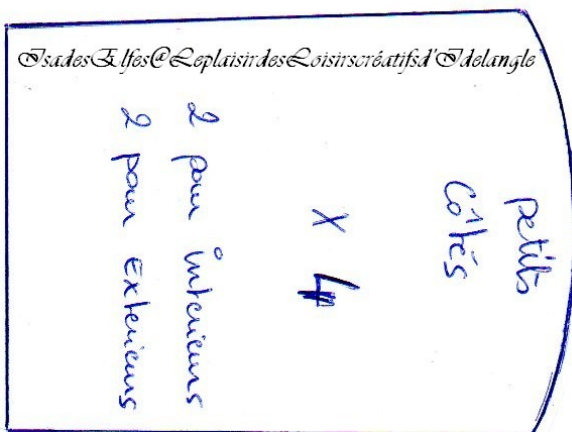 IsadesElfes@LeplaisirdesLoisirscréatifsd'Idelangle
petits
côtés
X 4
2 pour intérieurs
2 pour Extérieurs